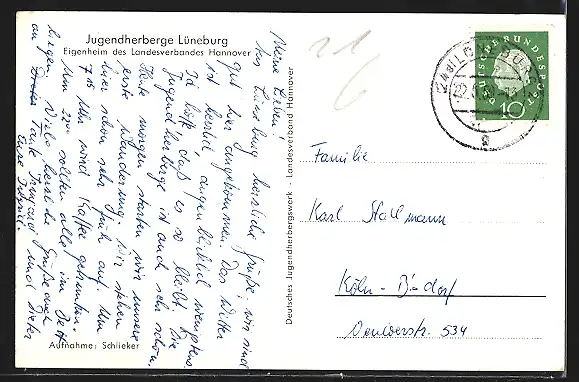 Jugendherberge Lüneburg
Eigenheim des Landesverbandes Hannover
Meine Lieben!
Aus Lüneburg herzliche Grüße, wir sind
gut hier angekommen. Das Wetter
ist herrlich, augenblicklich wenigstens.
Ich hoffe daß es so bleibt. Die
Jugendherberge ist auch sehr schön.
Heute morgen starten wir unsere
erste Wanderung. Wir stehen
hier schon sehr früh auf. Um
7 15 Uhr wird Kaffee getrunken.
Um 22 00 sollten alle im Bett
liegen. Viele herzliche Grüße auch
an Tante Irmgard und Dieter
Eure
Aufnahme: Schlieker
Deutsches Jugendherbergswerk - Landesverband Hannover
21
6
DEUTSCHE BUNDESPOST
10
Familie
Karl Stallmann
Köln - B'dorf
Venloerstr. 534